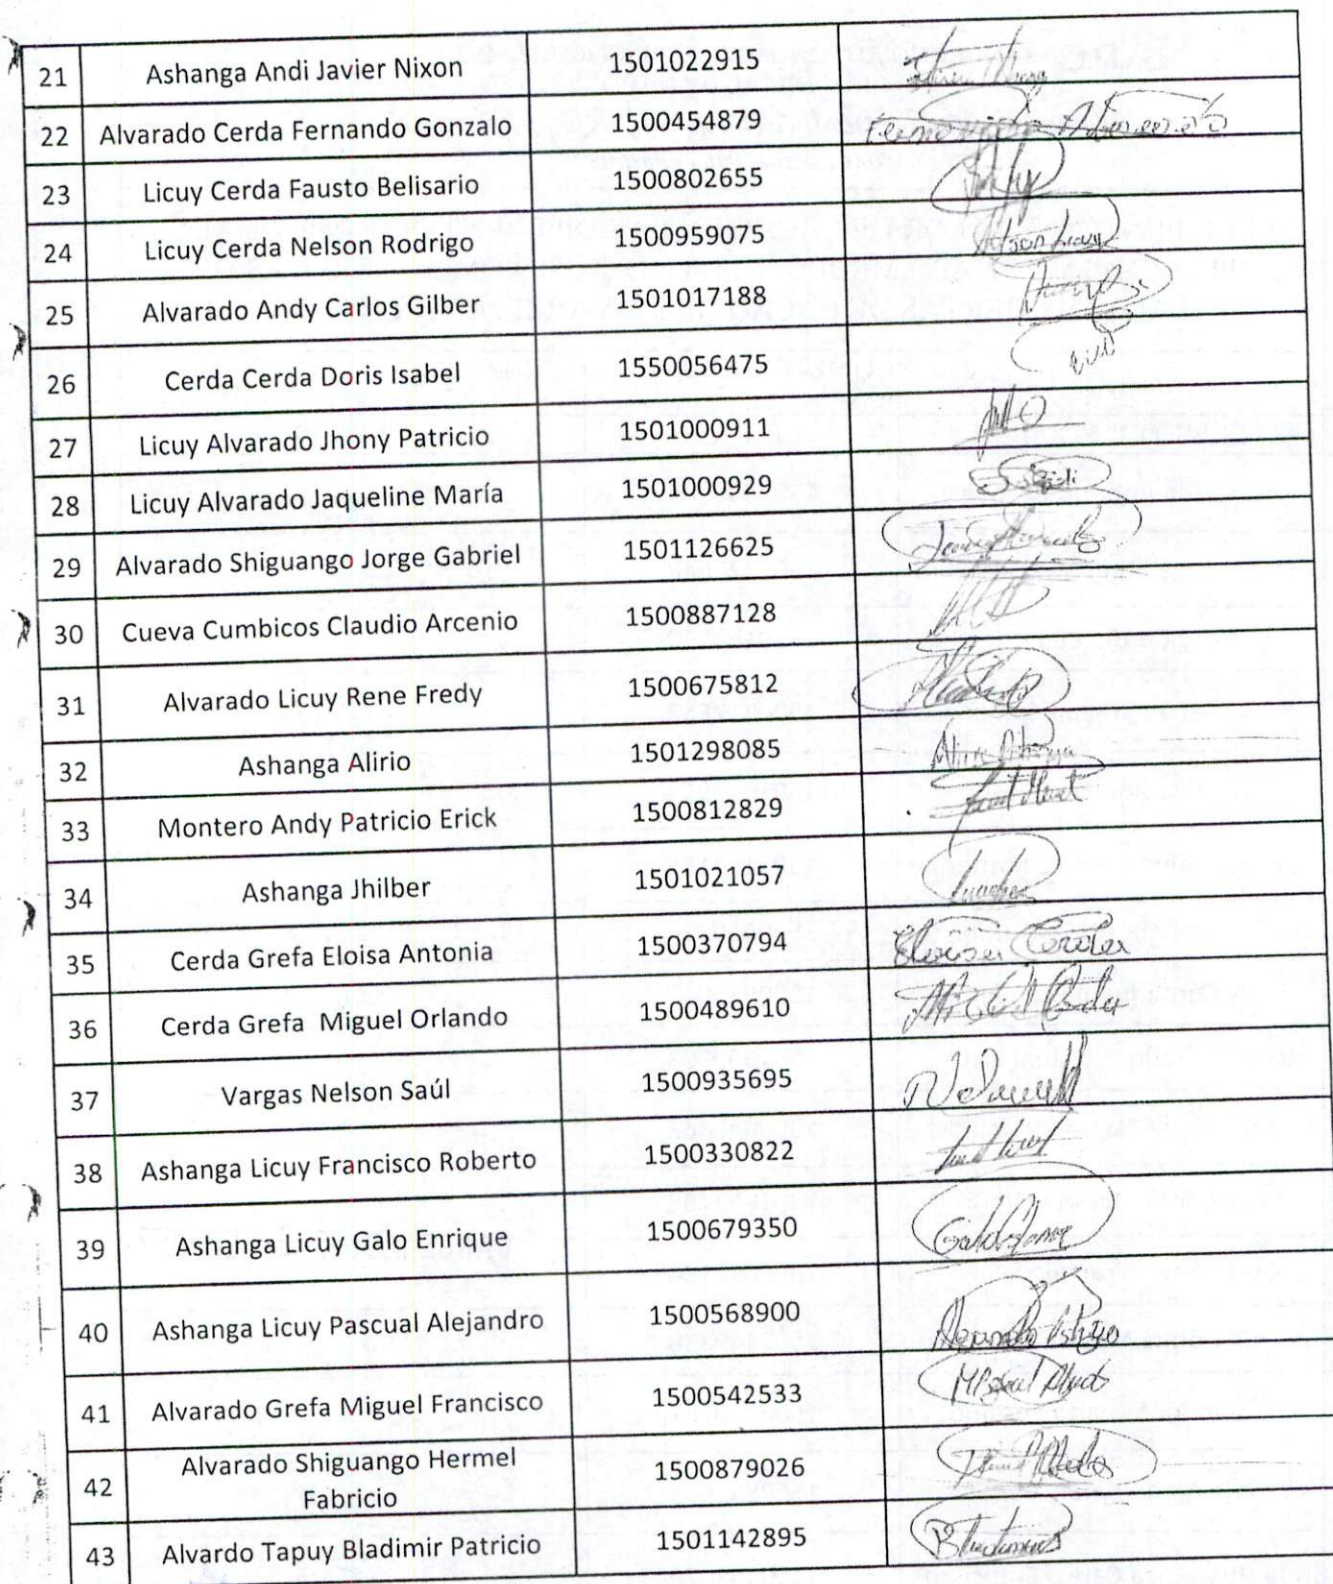 21 Ashanga Andi Javier Nixon 1501022915
22 Alvarado Cerda Fernando Gonzalo 1500454879
23 Licuy Cerda Fausto Belisario 1500802655
24 Licuy Cerda Nelson Rodrigo 1500959075
25 Alvarado Andy Carlos Gilber 1501017188
26 Cerda Cerda Doris Isabel 1550056475
27 Licuy Alvarado Jhony Patricio 1501000911
28 Licuy Alvarado Jaqueline María 1501000929
29 Alvarado Shiguango Jorge Gabriel 1501126625
30 Cueva Cumbicos Claudio Arcenio 1500887128
31 Alvarado Licuy Rene Fredy 1500675812
32 Ashanga Alirio 1501298085
33 Montero Andy Patricio Erick 1500812829
34 Ashanga Jhilber 1501021057
35 Cerda Grefa Eloisa Antonia 1500370794
36 Cerda Grefa Miguel Orlando 1500489610
37 Vargas Nelson Saúl 1500935695
38 Ashanga Licuy Francisco Roberto 1500330822
39 Ashanga Licuy Galo Enrique 1500679350
40 Ashanga Licuy Pascual Alejandro 1500568900
41 Alvarado Grefa Miguel Francisco 1500542533
42 Alvarado Shiguango Hermel 1500879026
Fabricio
43 Alvardo Tapuy Bladimir Patricio 1501142895